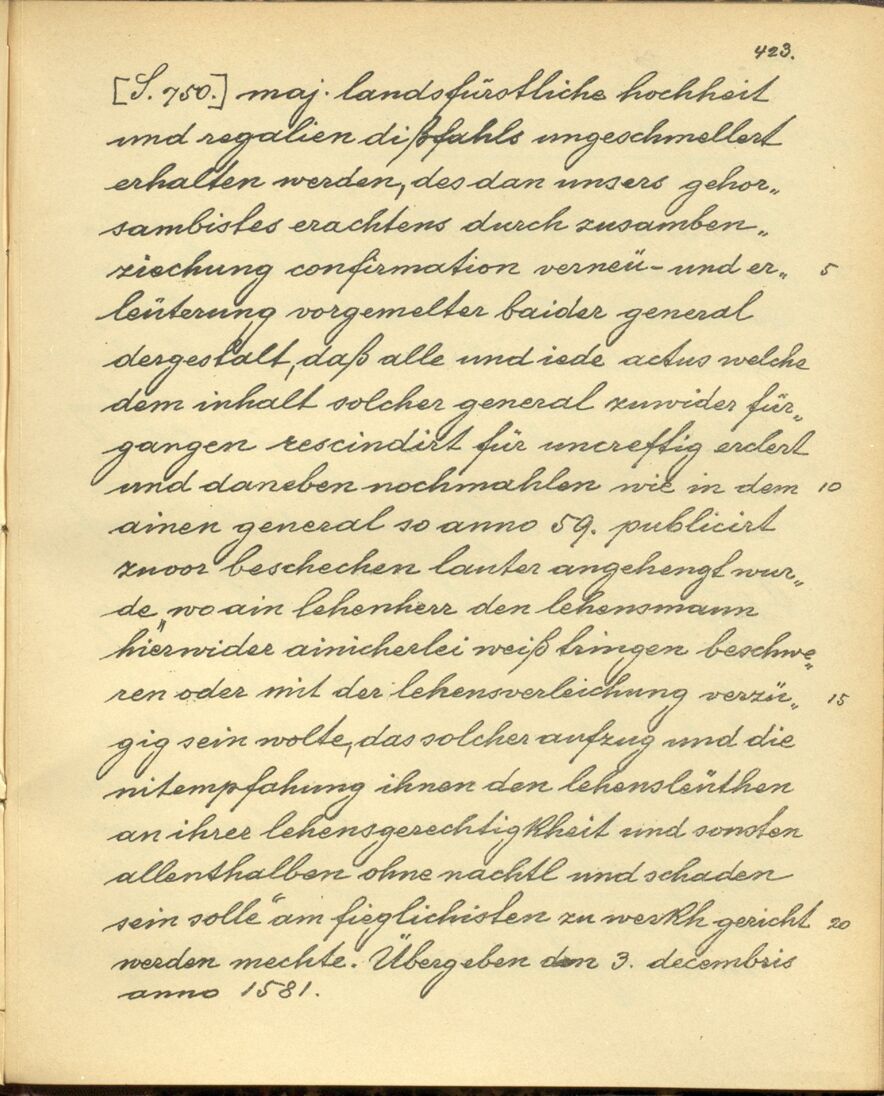 423.
[S. 750.] maj. landsfürstliche hochheit
und regalien dißfahls ungeschmellert
erhalten werden, des dan unsers gehor„
sambistes erachtens durch zusamben„
ziechung confirmation verneü- und er„ 5
leüterung vorgemelter baider general
dergestalt, daß alle und iede actus welche
dem inhalt solcher general zuwider für„
gangen rescindirt für uncreftig erclert
und daneben nochmahlen wie in dem 10
ainen general so anno 59. publicirt
zuvor beschechen lauter angehengt wur„
de „wo ain lehenherr den lehensmann
hierwider ainicherlei weiß tringen beschwe„
ren oder mit der lehensverleichung verzü„ 15
gig sein wolte, das solcher aufzug und die
nitempfahung ihnen den lehensleüthen
an ihrer lehensgerechtigkheit und sonsten
allenthalben ohne nachtl und schaden
sein solle“ am fieglichisten zu werkh gericht 20
werden mechte. Übergeben den 3. decembris
anno 1581.